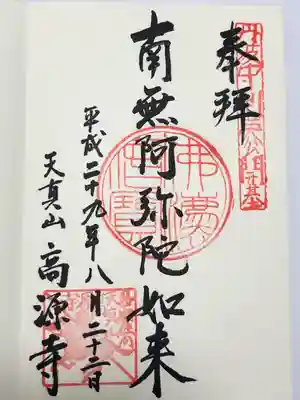 奉拝
南無阿弥陀如来
平成二十九年八月二十二日
天真山 高源寺